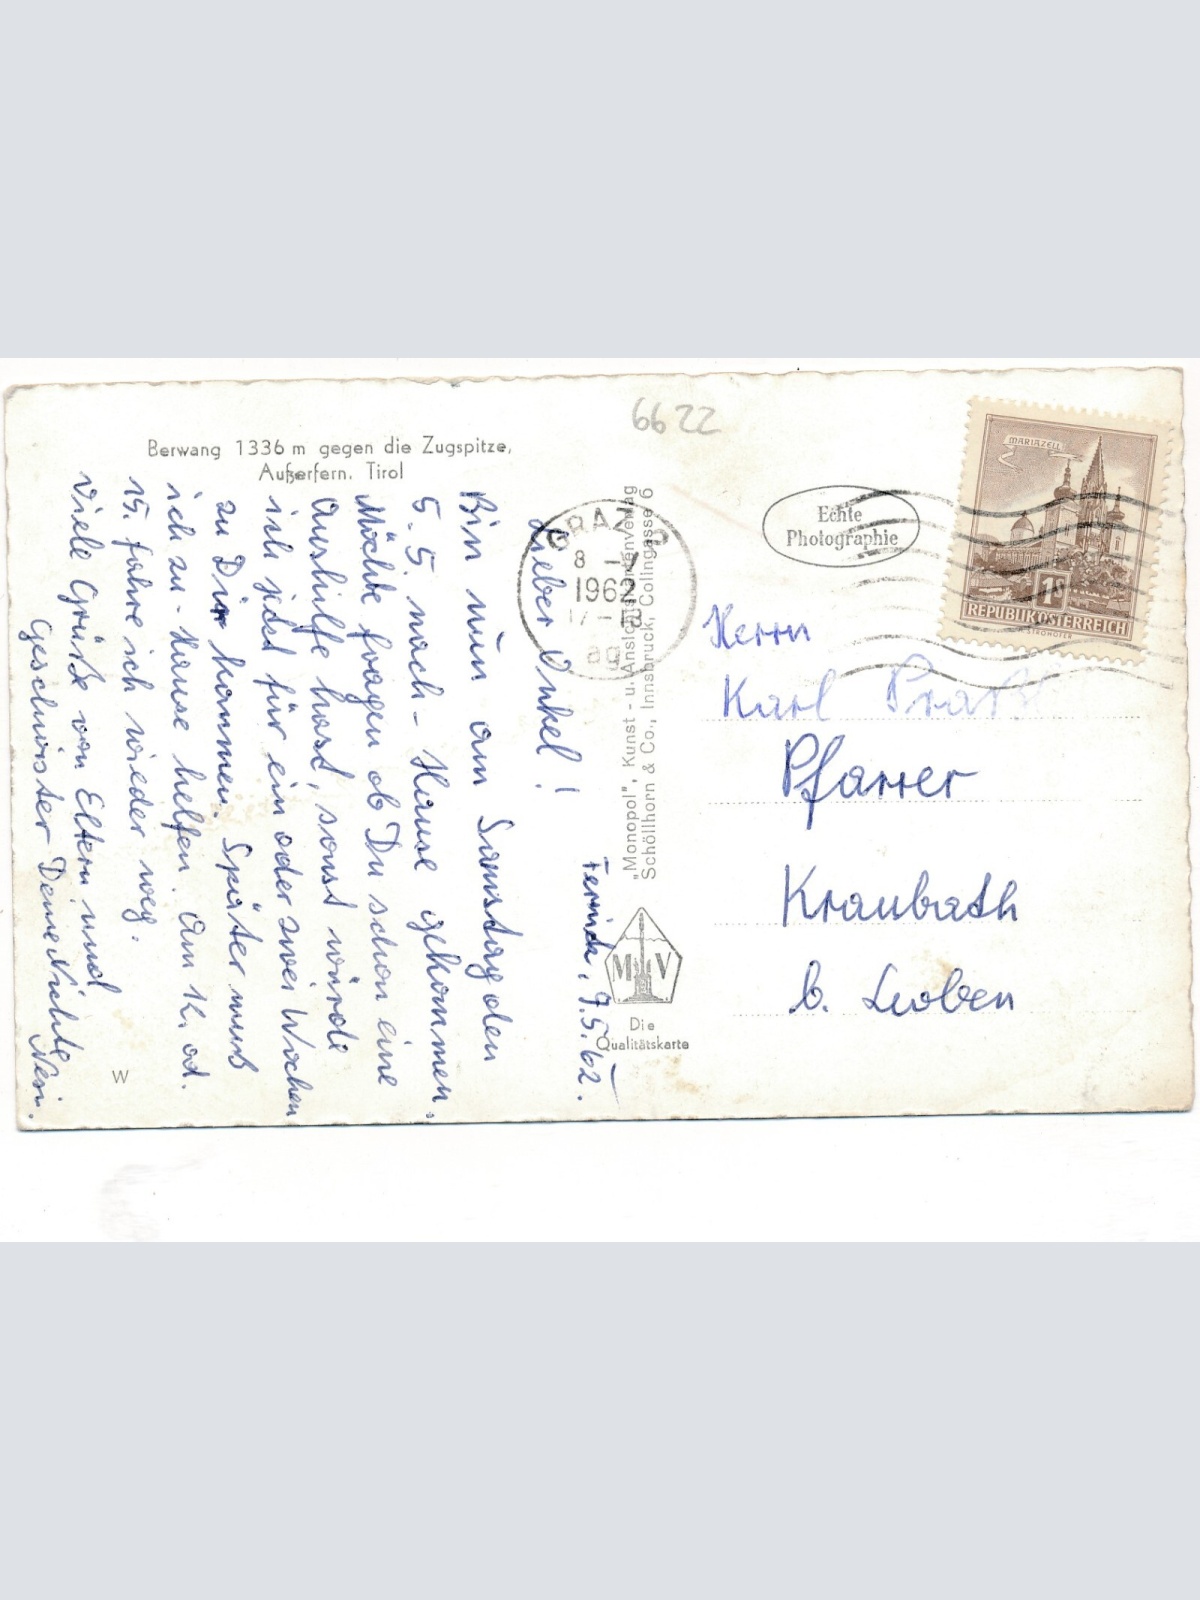 6622
Berwang 1336 m gegen die Zugspitze,
Außerfern, Tirol
7.5.62.
Lieber Onkel!
Bin nun am Samstag den
5.5. nach-Hause gekommen.
Möchte fragen ob Du schon eine
Aushilfe hast, sonst würde
ich jetzt für ein oder zwei Wochen
zu Dir kommen. Später muß
ich zu-Hause helfen. Am 12. od.
15. fahre ich wieder weg.
Viele Grüße von Eltern und
Geschwister Deine Nichte
Resi.
W
GRAZ
8 - V
1962
17-18
ag
"Monopol", Kunst- u. Ansichtskartenverlag
Schöllhorn & Co., Innsbruck, Colingasse 6
M V
Die
Qualitätskarte
Echte
Photographie
MARIAZELL
1S
REPUBLIK ÖSTERREICH
STROHOFER
Herrn
Karl
Pfarrer
Kraubath
b. Leoben